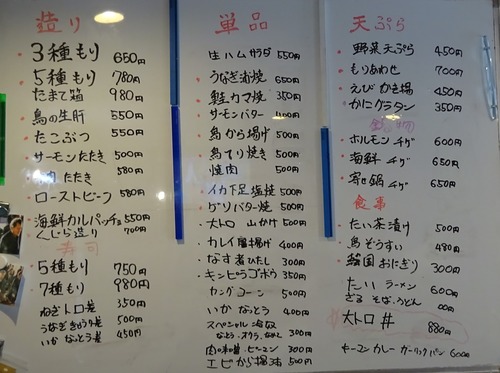 造り
3種もり 650円
5種もり 780円
たまて箱 980円
鳥の生肝 550円
たこぶつ 550円
サーモンたたき 500円
たたき 580円
ローストビーフ 580円
海鮮カルパッチョ 550円
くじら造り 700円
寿司
5種もり 750円
7種もり 980円
ねぎトロ巻 350円
うなぎきゅうり巻 500円
いかなっとう巻 450円
単品
生ハムサラダ 550円
うなぎ蒲焼 650円
鮭カマ焼 350円
サーモンバター 400円
鳥から揚げ 500円
鳥てり焼き 500円
焼肉 500円
イカ下足塩焼 500円
ゲソバター焼 500円
大トロ 山かけ 500円
カレイ唐揚げ 400円
なす煮ひたし 300円
キンピラゴボウ 350円
ヤングコーン 500円
いかなっとう 400円
スペシャル
なっとう、オクラ、 300円
肉の味噌 ピーマン 300円
エビから揚げ 500円
天ぷら
野菜天ぷら 450円
もりあわせ 700円
えびかき揚 450円
かにグラタン 350円
鍋物
ホルモンチゲ 600円
海鮮 チゲ 650円
寄せ鍋 チゲ 650円
食事
たい茶漬け 500円
鳥ぞうすい 480円
韓国おにぎり 300円
たい ラーメン 600円
ざるそば、うどん 00円
大トロ丼 880円
キーマンカレー ガーリックパン 600円